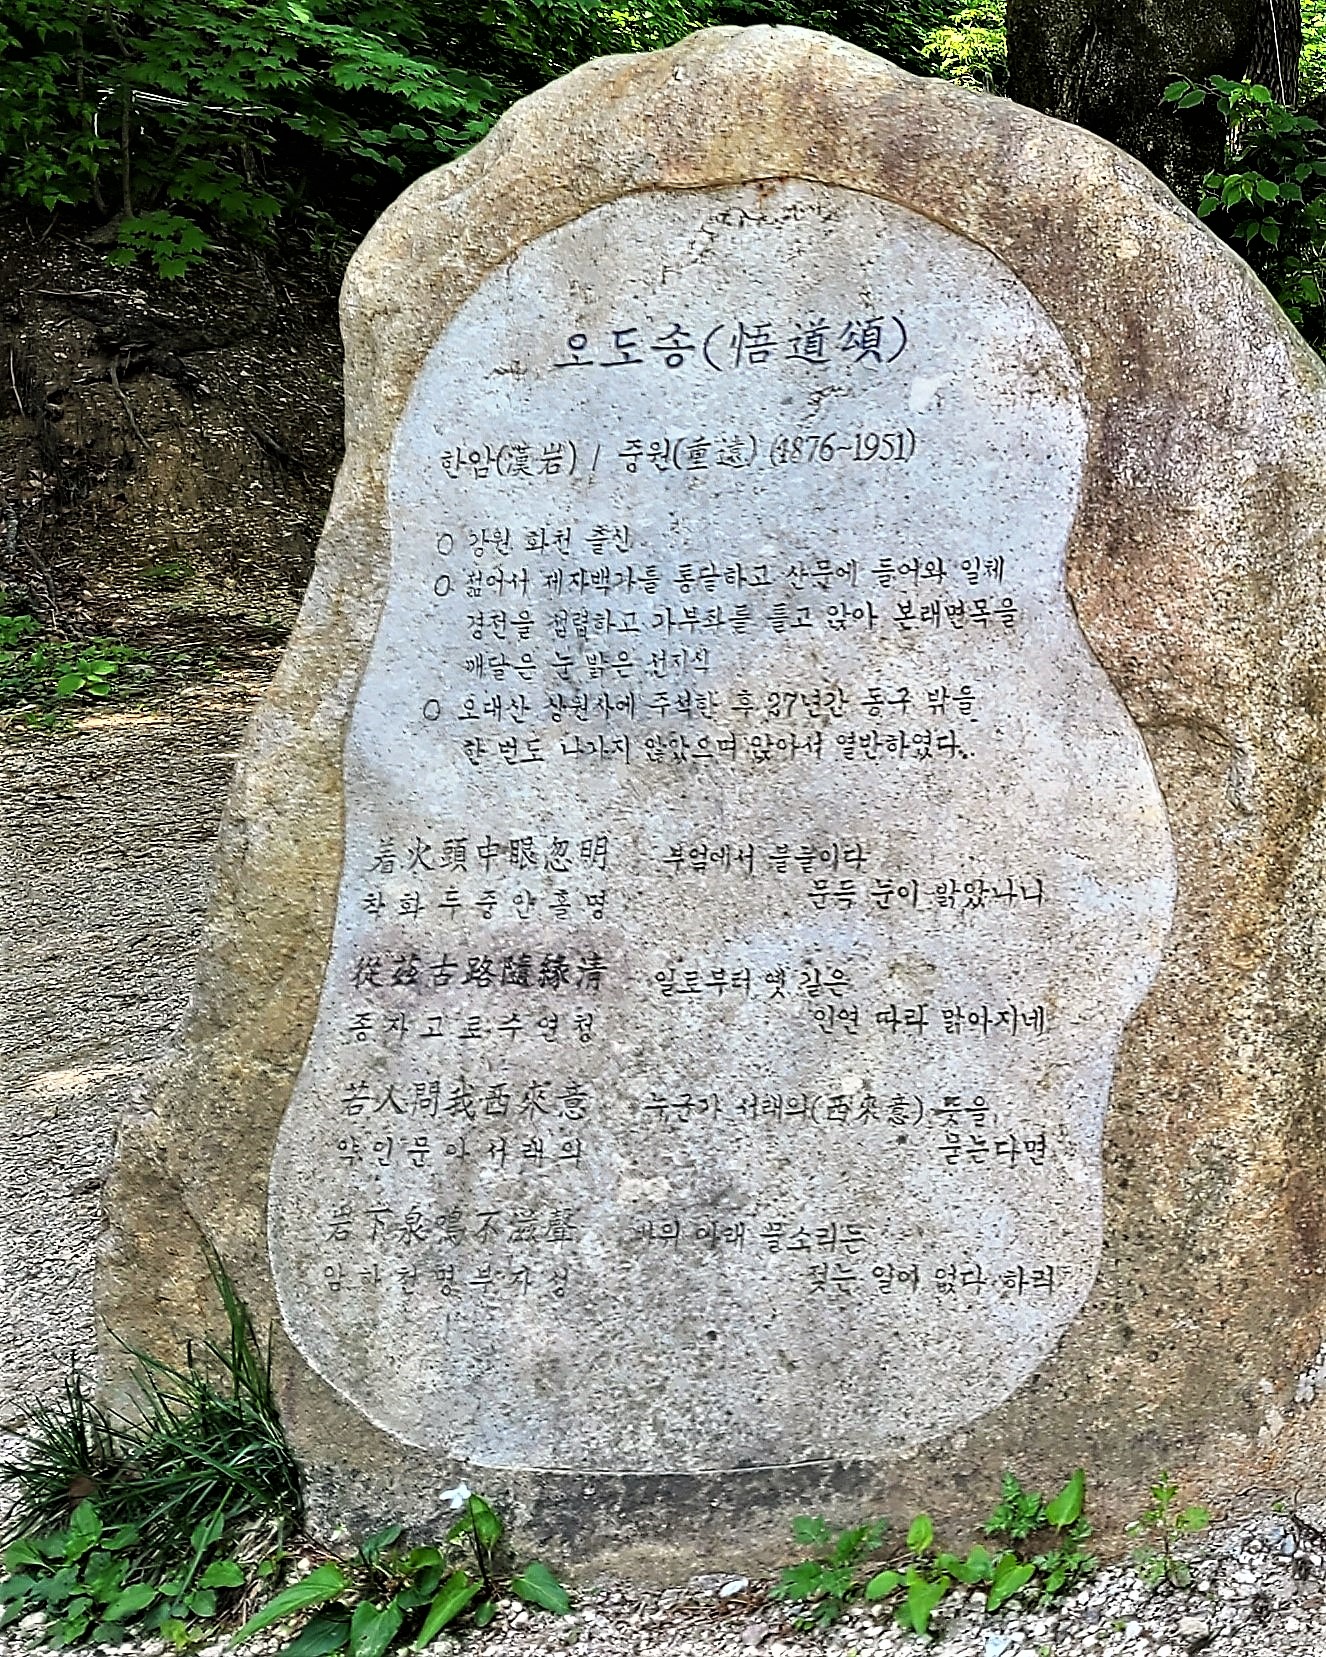 오도송(悟道頌)
한암(漢岩) / 중원(重遠) (1876~1951)
○ 강원 화천 출신
○ 젊어서 제자백가를 통달하고 산문에 들어와 일체
경전을 섭렵하고 가부좌를 틀고 앉아 본래면목을
깨달은 눈 밝은 선지식
○ 오대산 상원사에 주석한 후 27년간 동구 밖을
한 번도 나가지 않았으며 앉아서 열반하였다.
着火頭中眼忽明 부엌에서 불붙이다
착화두중안홀명 문득 눈이 밝았나니
從玆古路隨緣清 일로부터 옛 길은
종자고로수연청 인연 따라 맑아지네
若人問我西來意 누군가 서래의(西來意) 뜻을
약인문아서래의 묻는다면
岩下泉鳴不滋聲 바위 아래 물소리는
암하천명부자성 젖는 일이 없다 하리